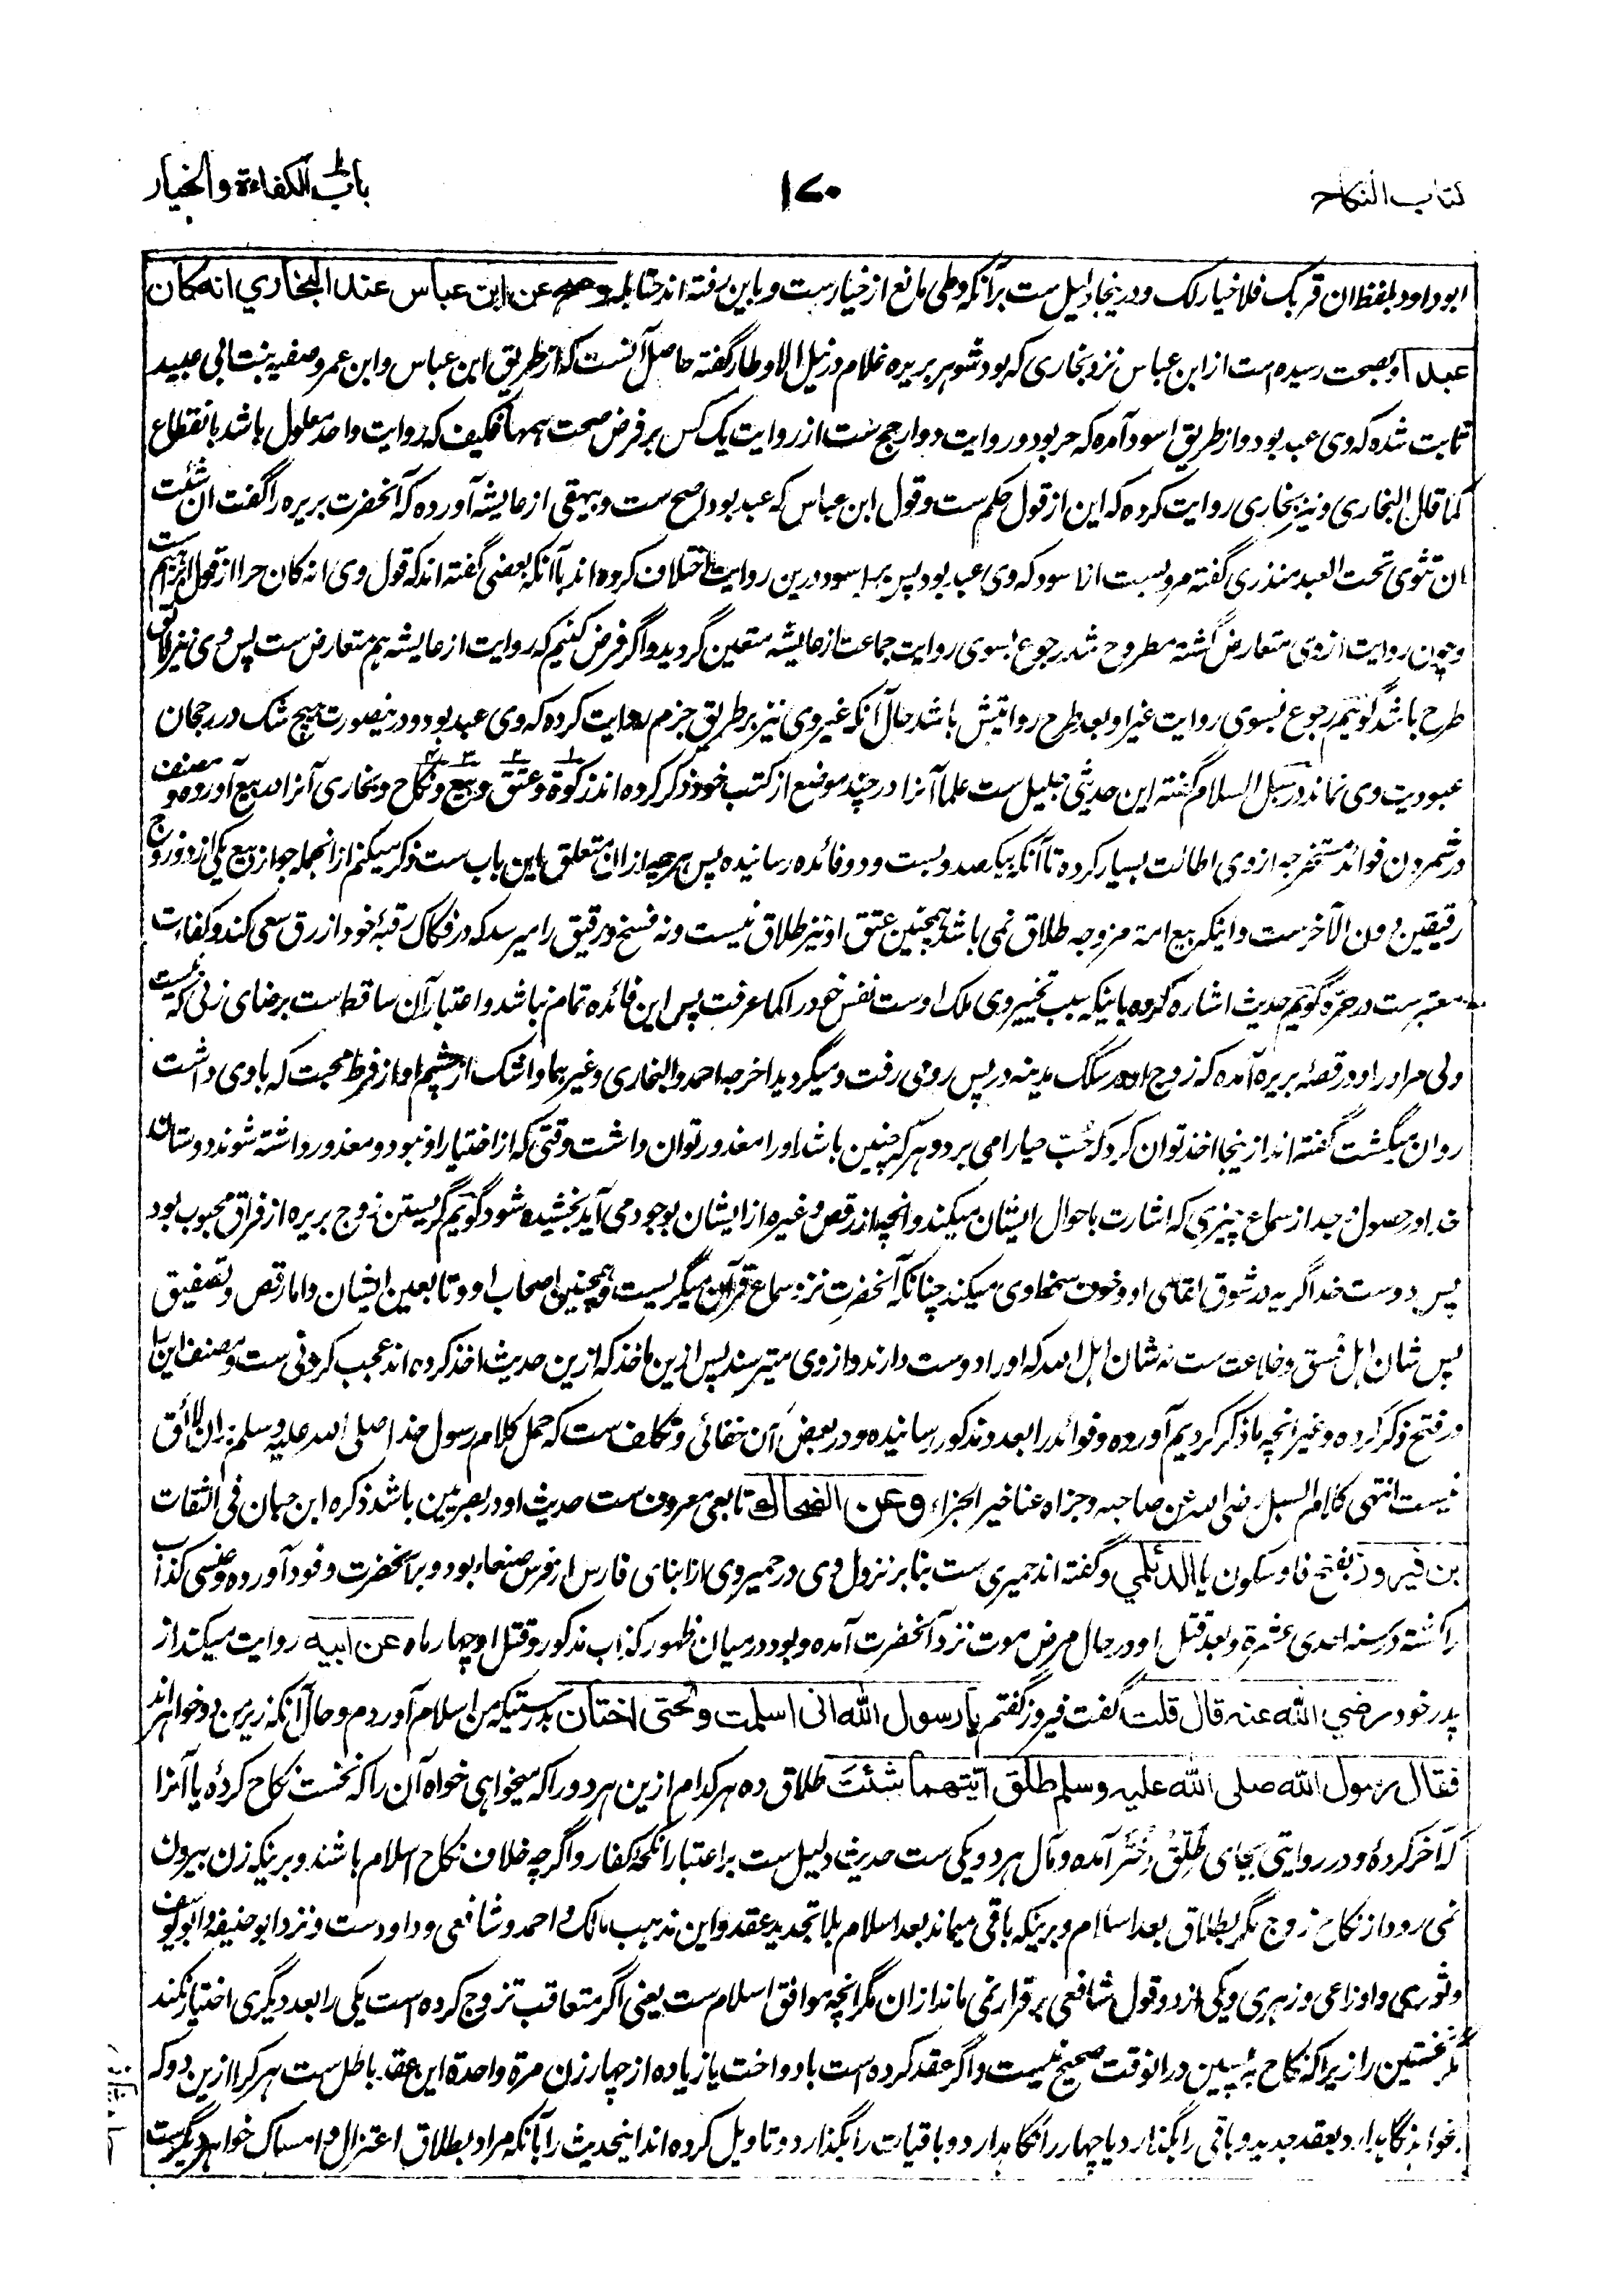 كتاب النكاح
١٧٠
باب الكفاءة والخيار
ابوداود بلفظ ان قربك فلا خيار لك ودرینجا دلیل ست برآنکه وطی مانع از خیارست و باین رفته اند حنابله وصح عن ابن عباس عند البخاري انه كان
عبدا و بصحت رسیده است از ابن عباس نزد بخاری که بود شوهر بریره غلام در نیل الاوطار گفته حاصل آنست که از طریق ابن عباس و ابن عمر وصفیه بنت ابی عبید
ثابت شده که وی عبد بود و از طریق اسود آمده که حر بود و روایت دو ارجح ست از روایت یک کس بر فرض صحت همه فکیف که روایت واحد معلول باشد بانقطاع
کما قال البخاری و نیز بخاری روایت کرده که این از قول حکم ست و قول ابن عباس که عبد بود اصح ست و بیهقی از عایشه آورده که آنحضرت بریره را گفت ان شئت
ان تثوی تحت العبد منذری گفته مرویست از اسود که وی عبد بود پس بر اسود درین روایت اختلاف کرده اند با آنکه بعضی گفته اند که قول وی انه کان حرا از قول ابراهیم ست
و چون روایت از وی متعارض گشته مطروح شد رجوع بسوی روایت جماعت از عایشه متعین گردید و اگر فرض کنیم که روایت از عایشه هم متعارض ست پس وی نیز لائق
طرح باشد گوئیم رجوع بسوی روایت غیر او بعد طرح روایتش باشد حال آنکه غیر وی نیز بر طریق جزم روایت کرده که وی عبد بود و درینصورت هیچ شک در رجحان
عبودیت وی نماند در سبل السلام گفته این حدیثی جلیل ست علما آنرا در چند موضع از کتب خود ذکر کرده اند زکوة و عتق و بیع و نکاح و بخاری آنرا در بیع آورده و مصنف
در شمردن فوائد مستخرجه از وی اطالت بسیار کرده تا آنکه بیکصد و بست و دو فائده رسانیده پس هرچه از ان متعلق باین باب ست ذکر میکنم از انجمله جواز بیع یکی از دو زوج
رقیقین دون الآخرست و اینکه بیع امه مزوجه طلاق نمی باشد همچنین عتق او نیز طلاق نیست و نه فسخ و رقیق را میرسد که در فکاک رقبهٔ خود از رق سعی کند و کفاءت
معتبرست در حره گوئیم حدیث اشاره کرده باینکه سبب تخییر وی ملک اوست نفس خود را کما عرفت پس این فائده تمام نباشد و اعتبار آن ساقط است برضای زنی که نیست
ولی مر او را و در قصهٔ بریره آمده که زوج او در سکک مدینه در پس روی رفت و میگردید اخرجه احمد والبخاری وغیرهما و اشک از چشم او از فرط محبت که باوی داشت
روان میگشت گفته اند ازینجا اخذ توان کرد که حب حیا را می برد و هر که چنین باشد او را معذور توان داشت وقتی که از اختیار او نبود و معذور داشته شوند دوستان
خدا در حصول وجد از سماع چیزی که اشارت باحوال ایشان میکند و انچه از رقص و غیره از ایشان بوجود می آید بخشیده شود گوئیم گریستن زوج بریره از فراق محبوب بود
پس دوست خدا گریه در شوق لقای او و خوف سخط وی میکند چنانکه آنحضرت نزد سماع قرآن میگریست و همچنین اصحاب او و تابعین ایشان و اما رقص و تصفیق
پس شان اهل فسق و خلاعت ست نه شان اهل الله که او را دوست دارند و از وی میترسند پس ازین ماخذ که ازین حدیث اخذ کرده اند عجب کردنی ست و مصنف این را
در فتح ذکر کرده و غیر انچه ما ذکر کردیم آورده و فوائد را بعدد مذکور رسانیده و در بعض آن خفائی و تکلف ست که حمل کلام رسول خدا صلی الله علیه وسلم بران لائق
نیست انتهی کلام السبل رضی الله عن صاحبه وجزاه عنا خیر الجزاء وعن الضحاك تابعی معروف ست حدیث او در بصریین باشد ذکره ابن حبان فی الثقات
بن فيروز بفتح فا و سکون یا الديلمي و گفته اند حمیری ست بنا بر نزول وی در حمیر وی از ابنای فارس از فرس صنعاء بود و بر آنحضرت وفود آورده و عنسی کذاب
را کشته در سنه احدی عشرة و بعد قتل او در حال مرض موت نزد آنحضرت آمده و بود در میان ظهور کذاب مذکور و قتل او چهار ماه عن ابيه روایت میکند از
پدر خود رضي الله عنه قال قلت گفت فیروز گفتم يا رسول الله انى اسلمت وتحتى اختان بدرستیکه من اسلام آوردم و حال آنکه زیر من دو خواهر اند
فقال رسول الله صلى الله عليه وسلم طلق ايتهما شئت طلاق ده هر کدام ازین هر دو را که میخواهی خواه آن را که نخست نکاح کردهٔ یا آنرا
که آخر کردهٔ و در روایتی بجای طلق اختر آمده و مآل هر دو یکی ست حدیث دلیل ست بر اعتبار انکحهٔ کفار و اگرچه خلاف نکاح اسلام باشند و برینکه زن بیرون
نمی رود از نکاح زوج مگر بطلاق بعد اسلام و برینکه باقی میماند بعد اسلام بلا تجدید عقد و این مذهب مالک و احمد و شافعی و داودست و نزد ابوحنیفه و ابویوسف
و ثوری و اوزاعی و زهری و یکی از دو قول شافعی برقرار نمی ماند از ان مگر انچه موافق اسلام ست یعنی اگر متعاقب تزوج کرده است یکی را بعد دیگری اختیار نکند
مگر نخستین را زیرا که نکاح پسپین در انوقت صحیح نیست و اگر عقد کرده است با دو اخت یا زیاده از چهار زن مرة واحدة این عقد باطل ست هر کرا ازین دو که
بخواهد نگاهدارد بعقد جدید و باقی را بگذارد یا چهار را نگاهدارد و باقیات را بگذارد و تاویل کرده اند اینحدیث را بآنکه مراد بطلاق اعتزال و امساک خواهر دیگرست